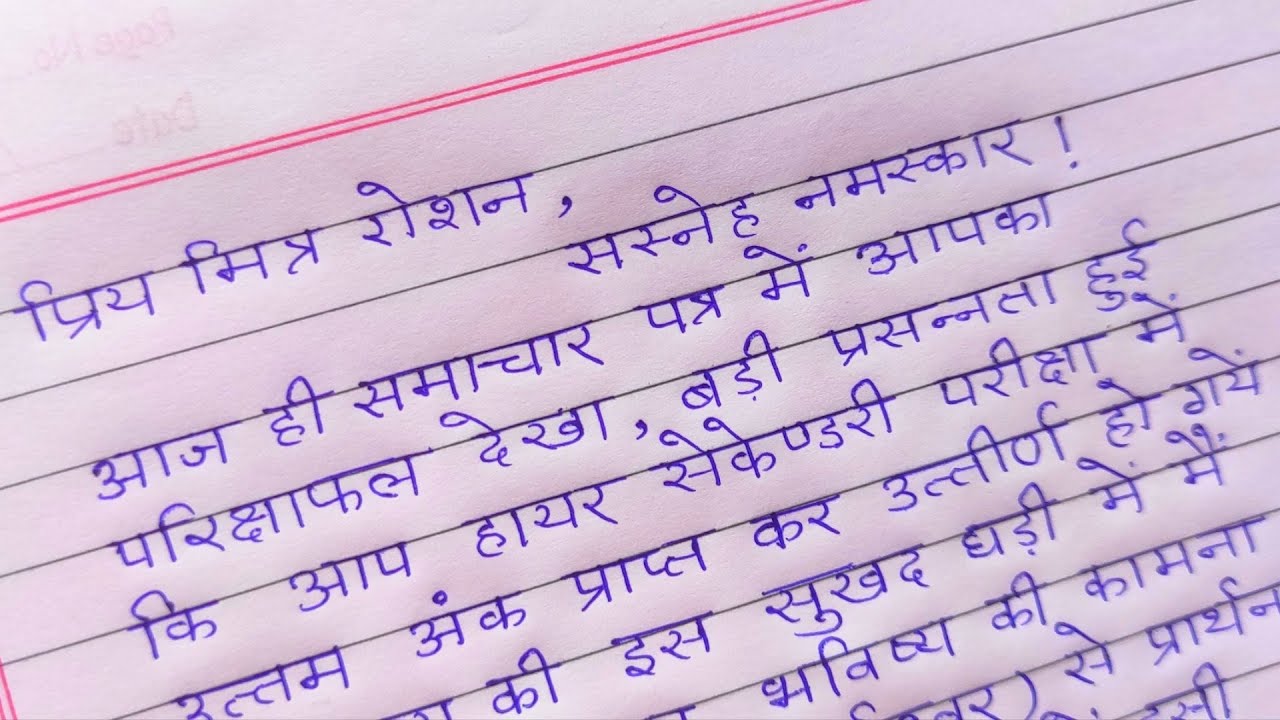 Page No.
Date
प्रिय मित्र रोशन,
सस्नेह नमस्कार !
आज ही समाचार पत्र में आपका
परिक्षाफल देखा, बड़ी प्रसन्नता हुई
कि आप हायर सेकेण्डरी परीक्षा में
उत्तम अंक प्राप्त कर उत्तीर्ण हो गयें
की इस सुखद घड़ी में मैं
भविष्य की कामना
से